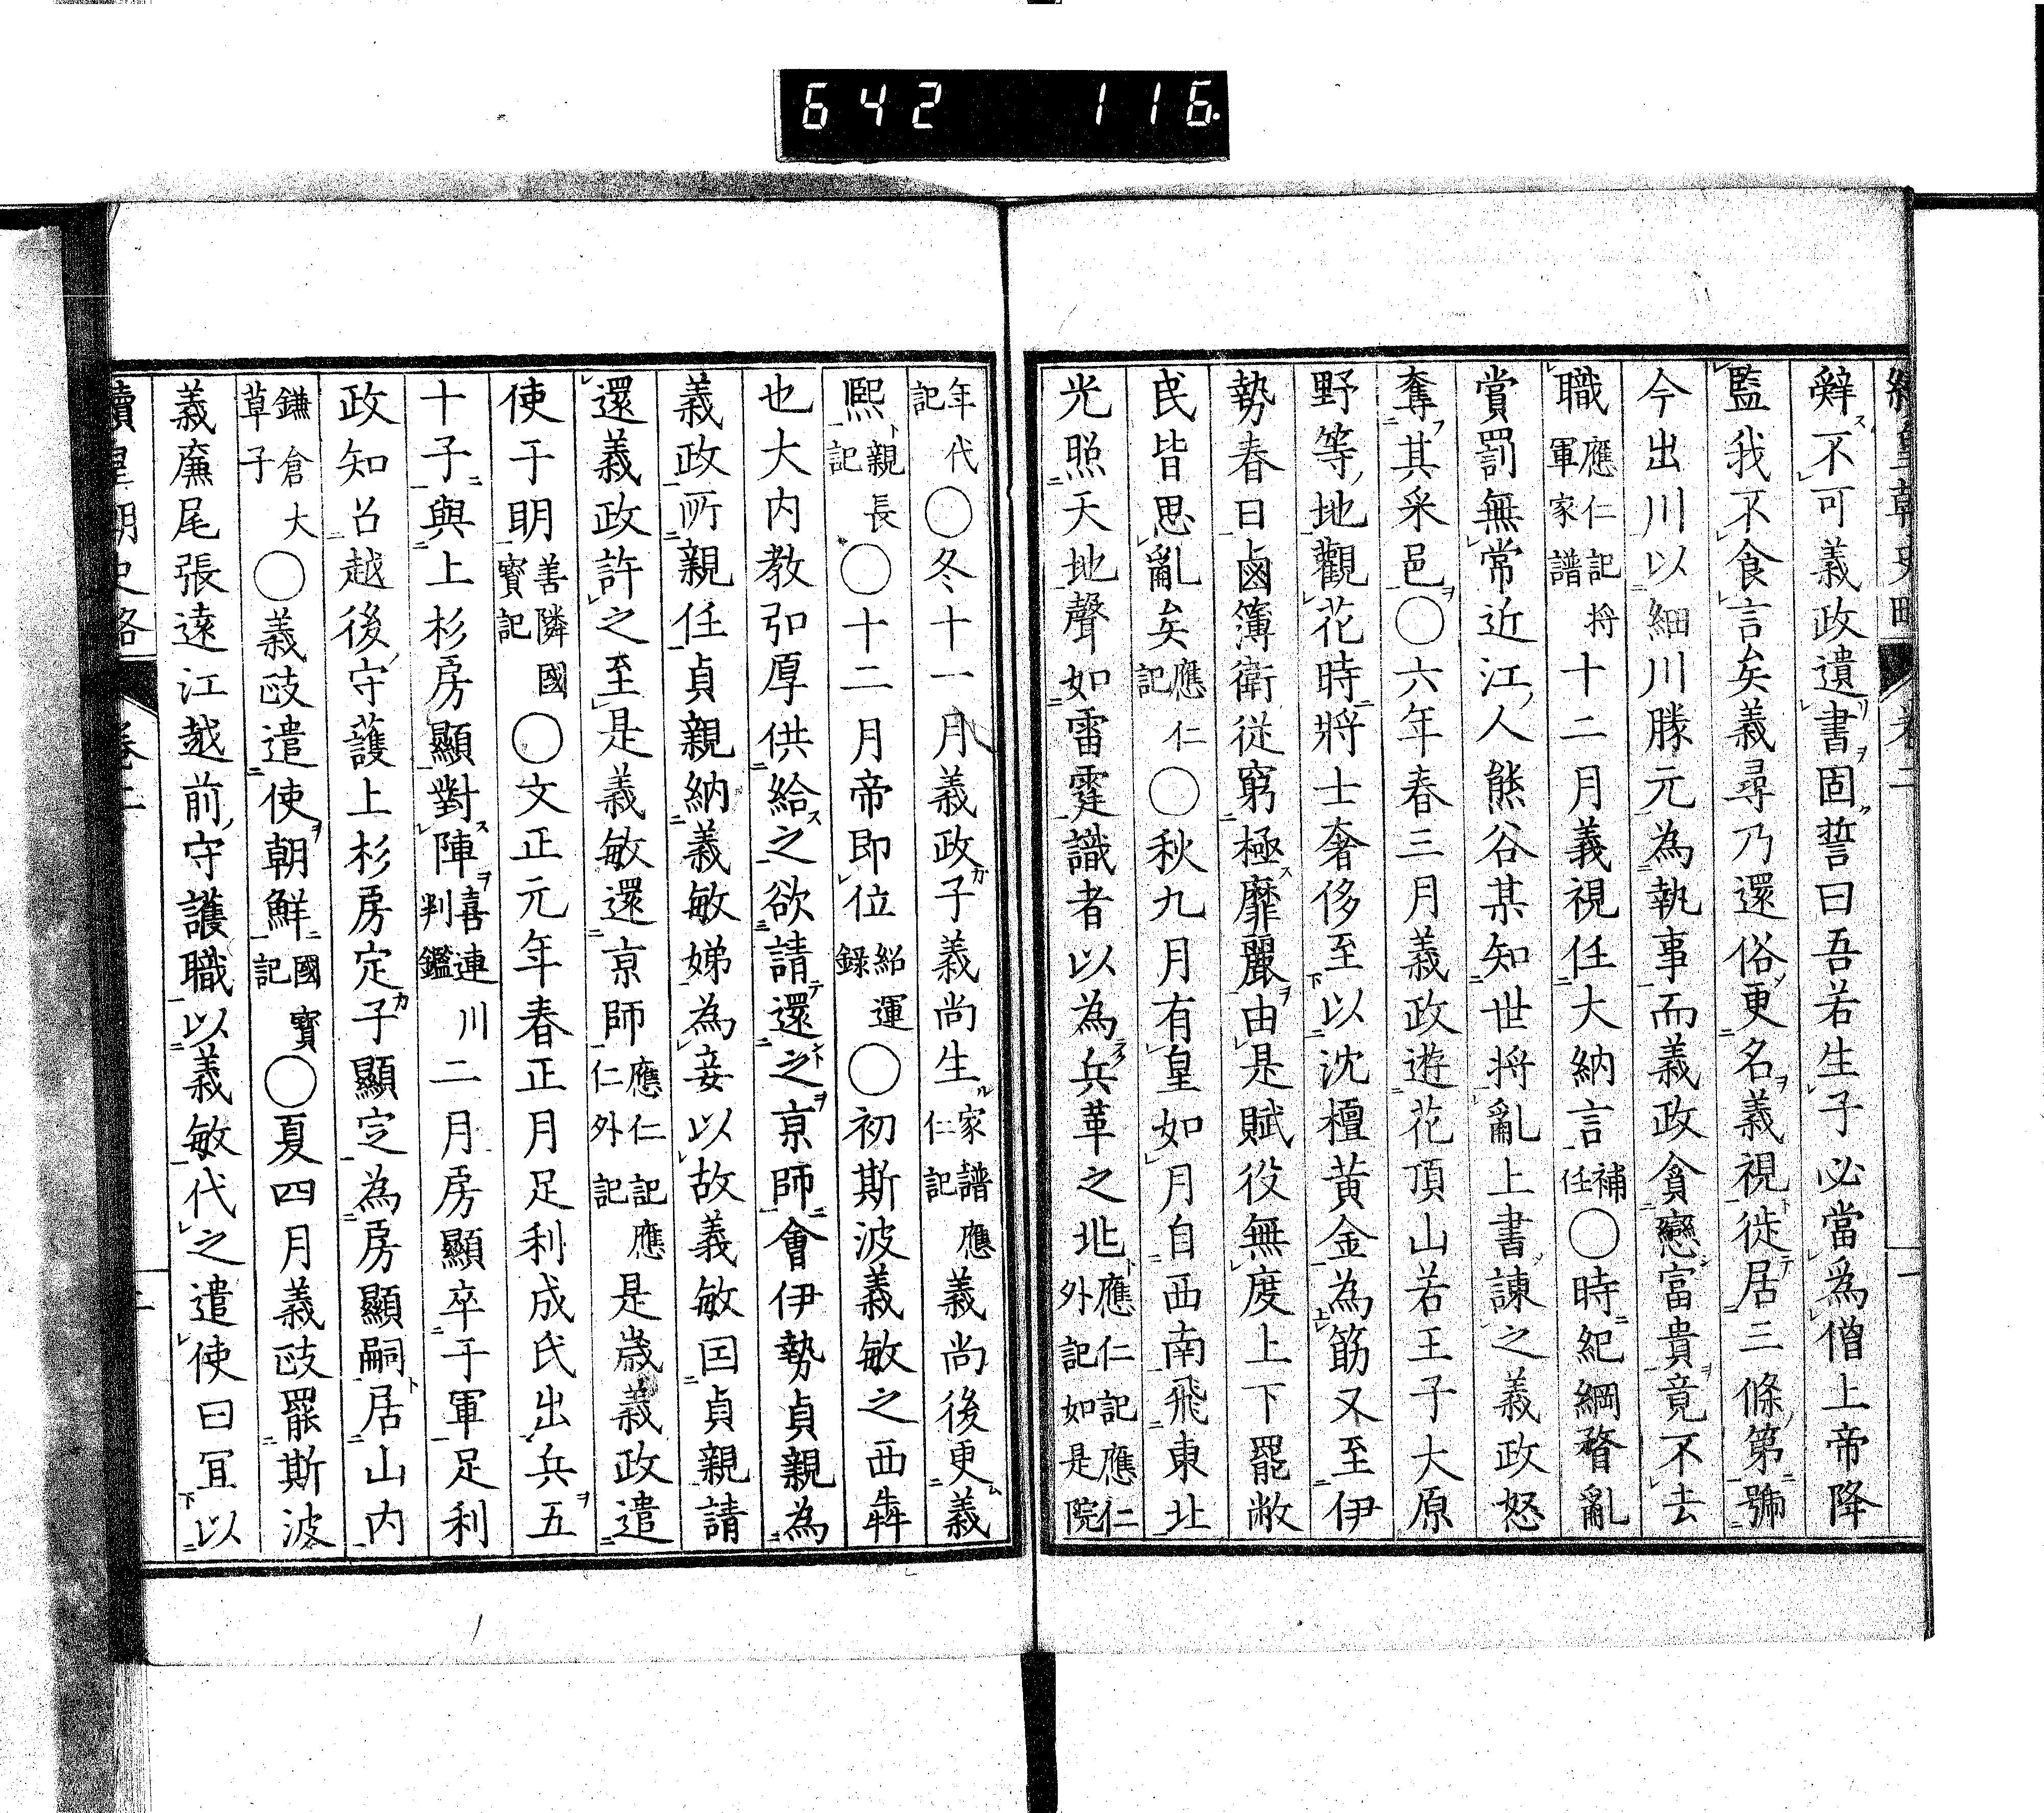 642 116
續皇朝史略 卷二 一
辭不可義政遺書固誓曰吾若生子必當爲僧上帝降
監我不食言矣義尋乃還俗更名義視徙居三條第號
今出川以細川勝元為執事而義政貪戀富貴竟不去
職應仁記將軍家譜十二月義視任大納言補任〇時紀綱瞀亂
賞罰無常近江人熊谷某知世將亂上書諫之義政怒
奪其采邑〇六年春三月義政遊花頂山若王子大原
野等地觀花時將士奢侈至以沈檀黃金為筯又至伊
勢春日鹵簿衛從窮極靡麗由是賦役無度上下罷敝
民皆思亂矣應仁記〇秋九月有星如月自西南飛東北
光照天地聲如雷霆識者以為兵革之兆應仁記應仁外記如是院
年代記〇冬十一月義政子義尚生家譜應仁記義尚後更義
熙親長記〇十二月帝即位紹運錄〇初斯波義敏之西犇
也大內教弘厚供給之欲請還之京師會伊勢貞親為
義政所親任貞親納義敏娣為妾以故義敏因貞親請
還義政許之至是義敏還京師應仁記應仁外記是歲義政遣
使于明善隣國寶記〇文正元年春正月足利成氏出兵五
十子與上杉房顯對陣喜連川判鑑二月房顯卒于軍足利
政知召越後守護上杉房定子顯定為房顯嗣居山內
鎌倉大草子〇義政遣使朝鮮國寶記〇夏四月義政罷斯波
義廉尾張遠江越前守護職以義敏代之遣使曰宜以
續皇朝史略 卷二 二